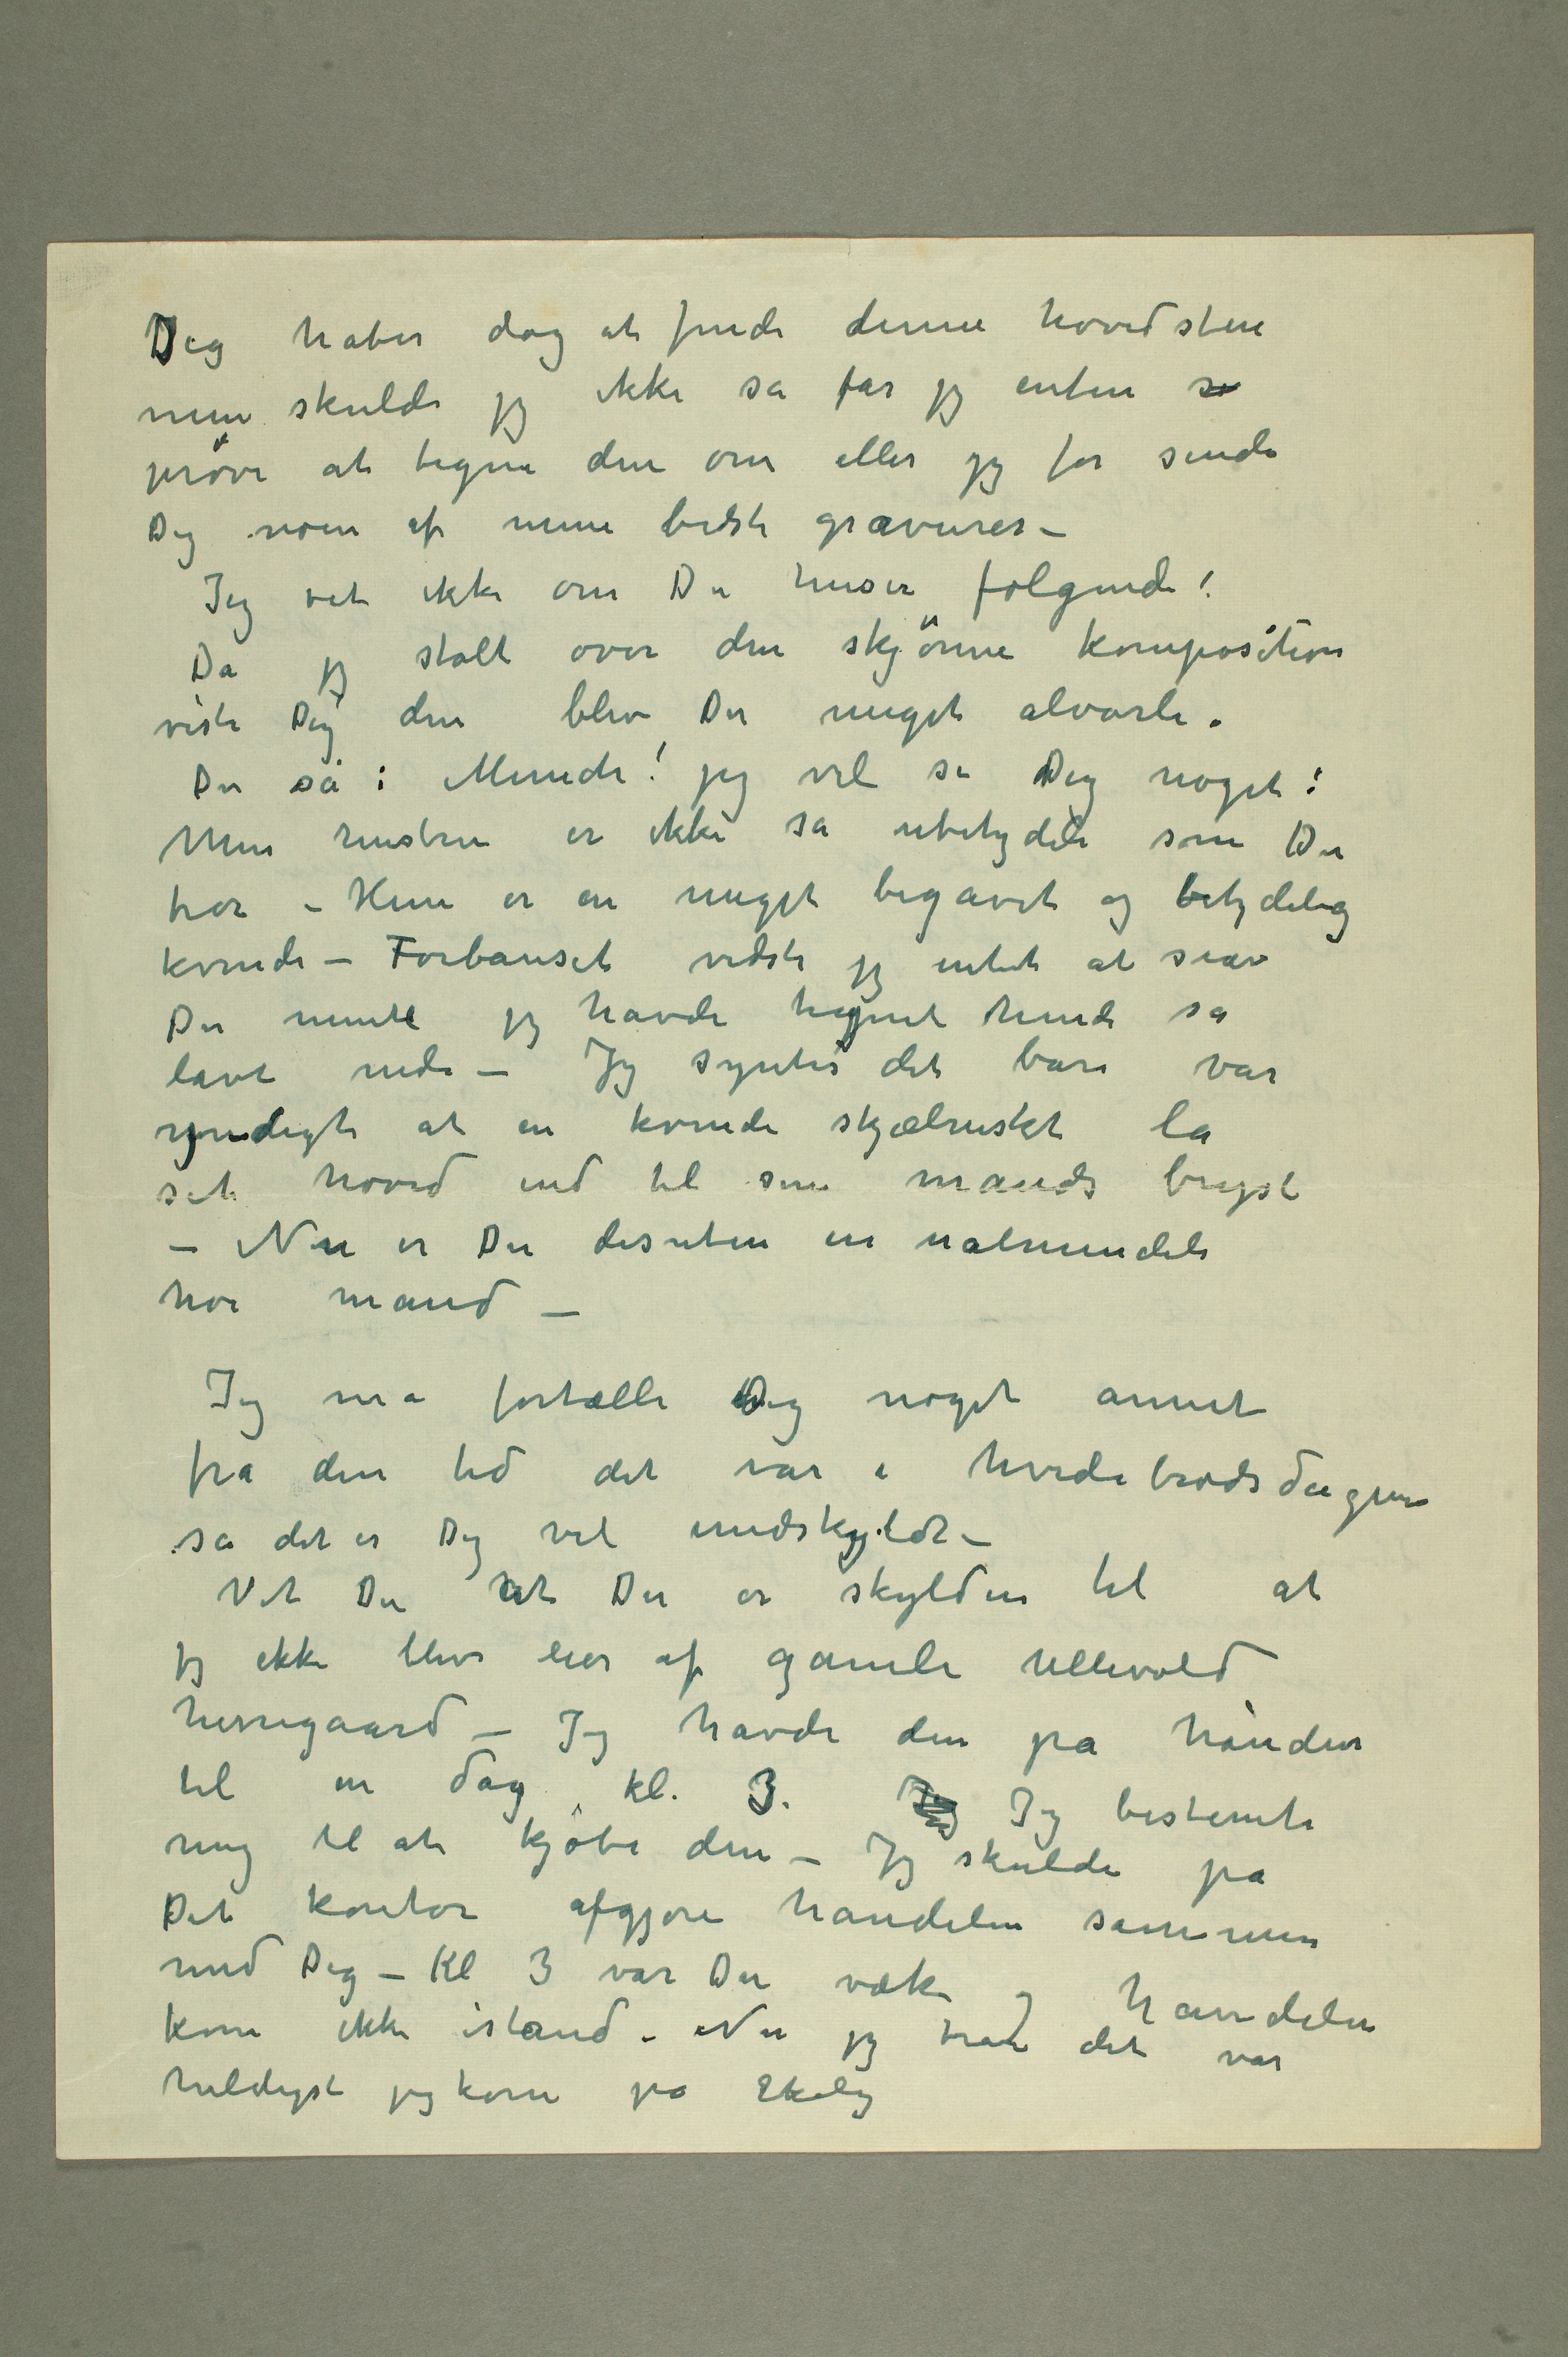 Jeg håber dog at finde denne hovedsten
men skulde jeg ikke så får jeg enten
pröve at tegne den om eller jeg får sende
Dig noen af mine bedste gravurer –
Jeg vet ikke om Du husker fölgende!
Da jeg stolt over den skjönne komposition
viste Dig den blev Du meget alvorli.
Du sa: Munch! jeg vil si Dig noget:
Min hustru er ikke så ubetydeli som Du
tror – Hun er en meget begavet og betydelig
kvinde – Forbauset vidste jeg intet at svare
Du mente jeg havde tegnet hende så
lavt nede – Jeg syntes det bare var
yndigt at en kvinde skjælmskt la
sit hoved ind til sin mands bryst
– Nu er Du desuten en ualmindeli
høi mand –
Jeg må fortælle Dig noget annet
fra den tid det var i hvedebrødsdagene
så det er Dig vel undskyldt –
Vet Du at Du er skylden til at
jeg ikke blev eier af gamle Ullevold
herregaard – Jeg havde den på hånden
til en dag kl. 3. Jeg bestemte
mig til at kjöbe den – Jeg skulde på
Dit kontor afgjøre handelen sammen
med Dig – Kl 3 var Du væk og handelen
kom ikke istand. Nu jeg tror det var
heldigst jeg kom på Ekely